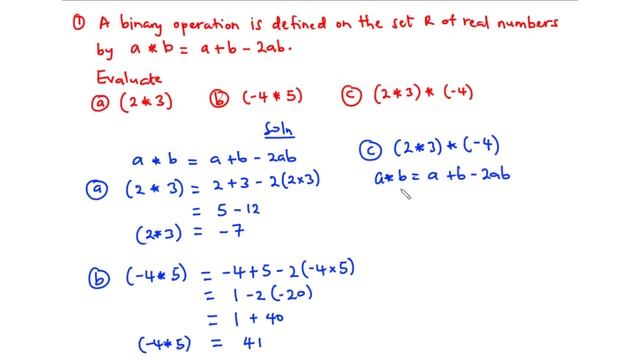 ① A binary operation is defined on the set R of real numbers
by a * b = a + b - 2ab.
Evaluate
ⓐ (2 * 3) ⓑ (-4 * 5) ⓒ (2 * 3) * (-4)
Soln
a * b = a + b - 2ab
ⓐ (2 * 3) = 2 + 3 - 2(2×3)
= 5 - 12
(2*3) = -7
ⓑ (-4 * 5) = -4 + 5 - 2(-4×5)
= 1 - 2(-20)
= 1 + 40
(-4*5) = 41
ⓒ (2*3) * (-4)
a * b = a + b - 2ab